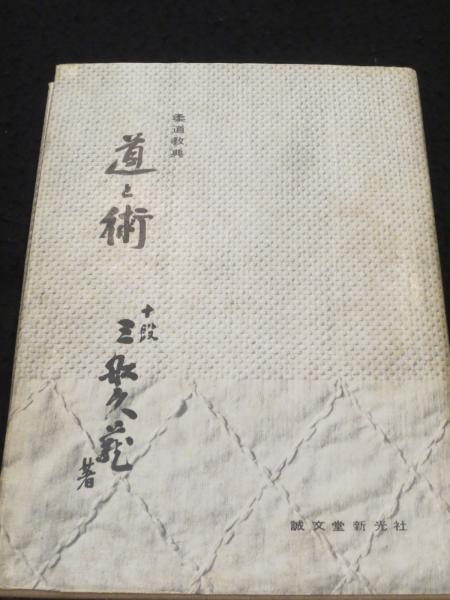 柔道教典
道と術
十段
三船久蔵
著
誠文堂新光社